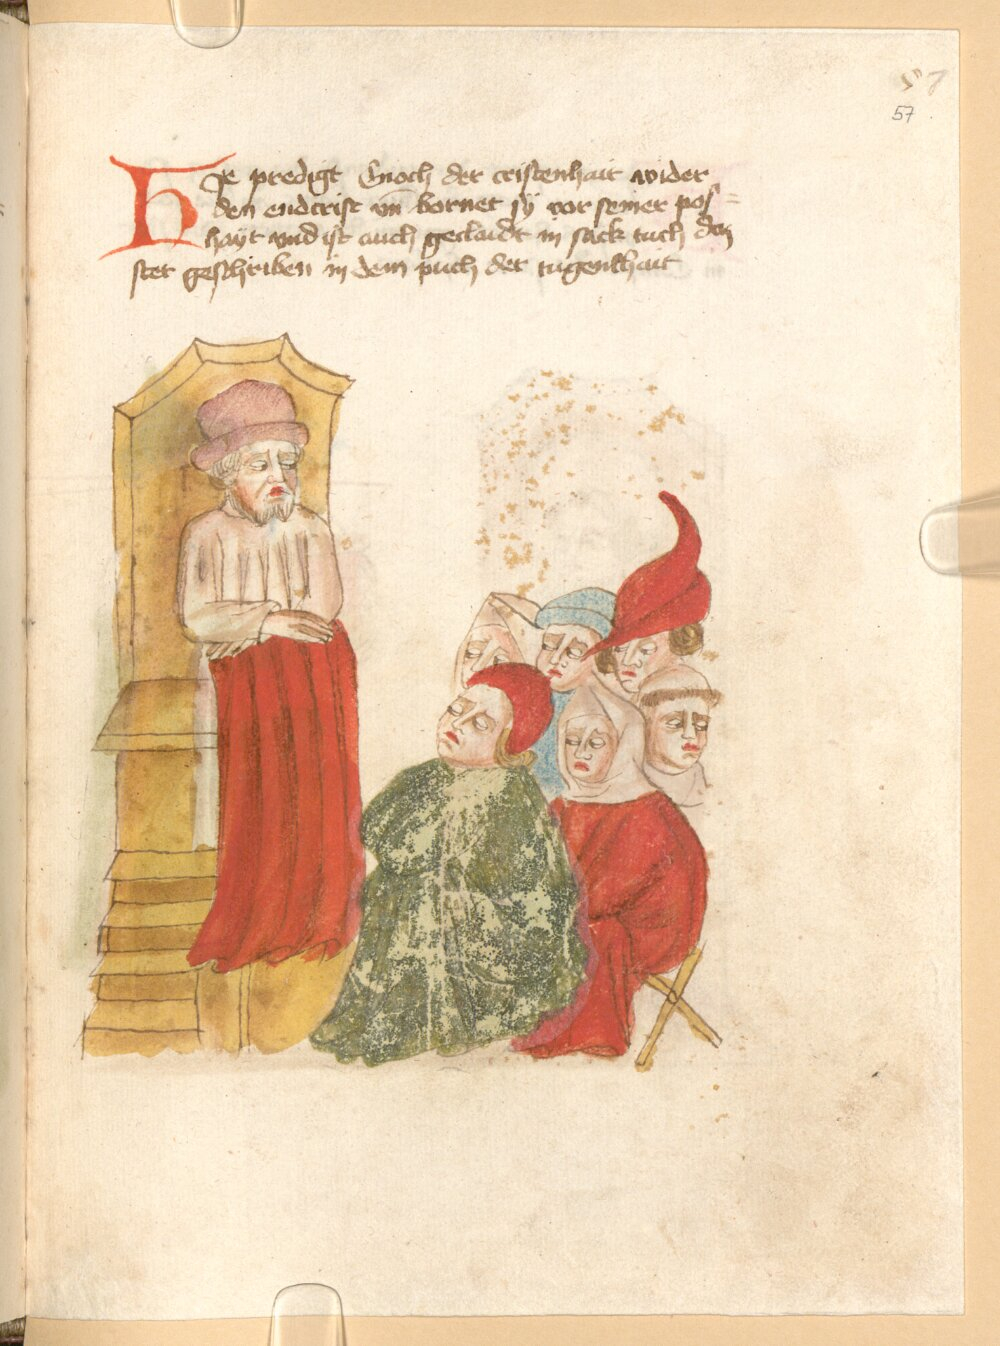 57
57
Hie predigt Enoch der cristenhait wider
den endcrist vñ bornet sÿ vor seiner pos=
hayt vnd ist auch geclaidt in sack tuch daz
stet geschriben in dem puch der tugenlhait